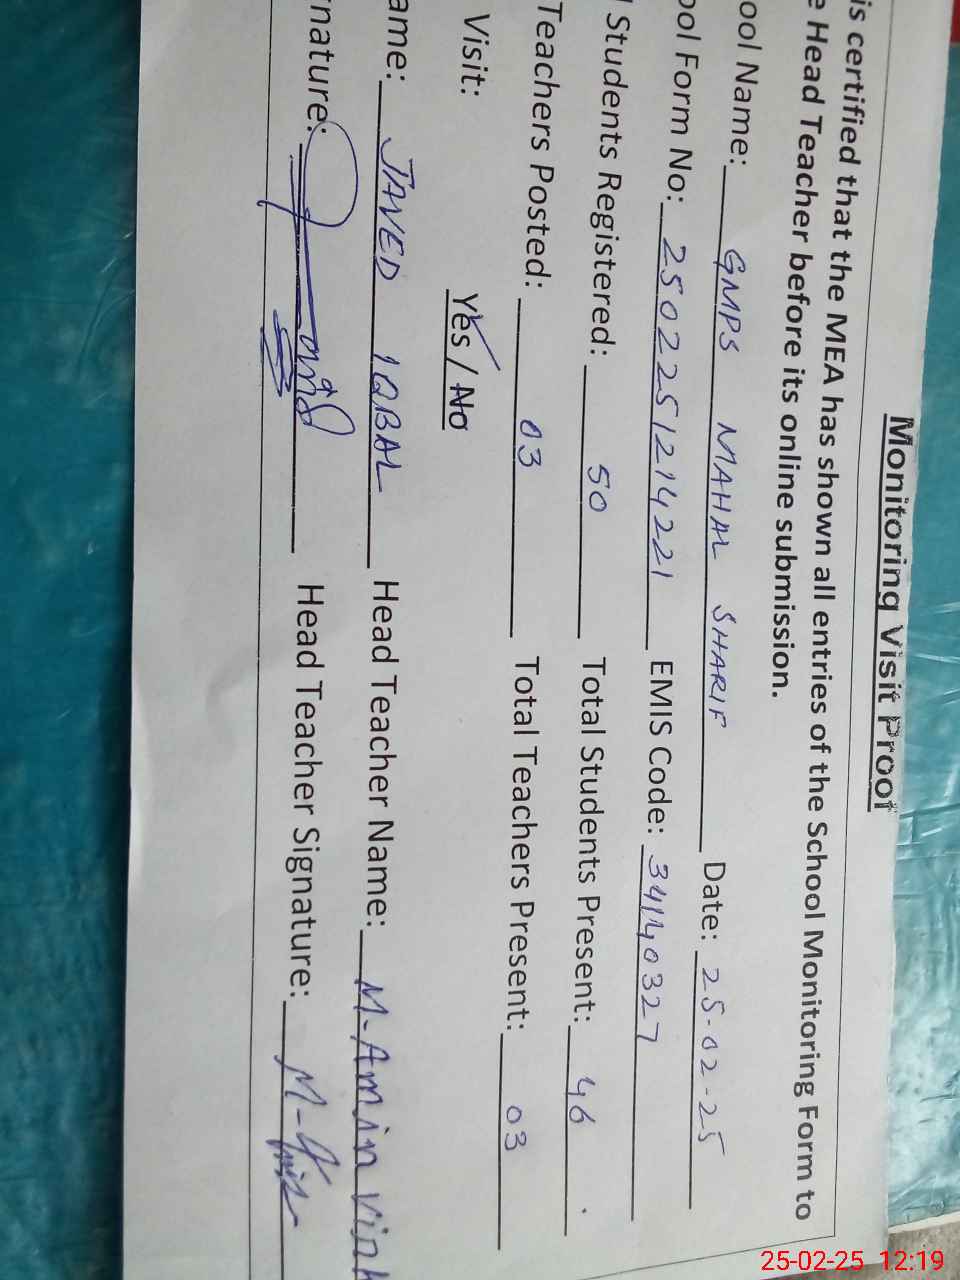 Monitoring Visit Proof
is certified that the MEA has shown all entries of the School Monitoring Form to
e Head Teacher before its online submission.
ool Name: GMPS MAHAL SHARIF Date: 25-02-25
ool Form No: 2502251214221 EMIS Code: 34140327
Students Registered: 50 Total Students Present: 46
Teachers Posted: 03 Total Teachers Present: 03
Visit: Yes / No
ame: JAVED IQBAL Head Teacher Name: M-Amin
nature: Head Teacher Signature:
25-02-25 12:19